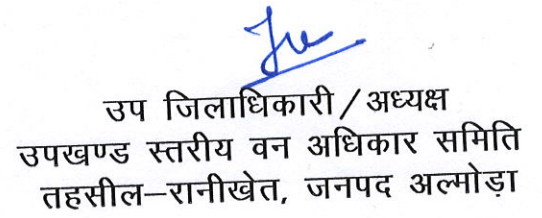 उप जिलाधिकारी / अध्यक्ष
उपखण्ड स्तरीय वन अधिकार समिति
तहसील–रानीखेत, जनपद अल्मोड़ा